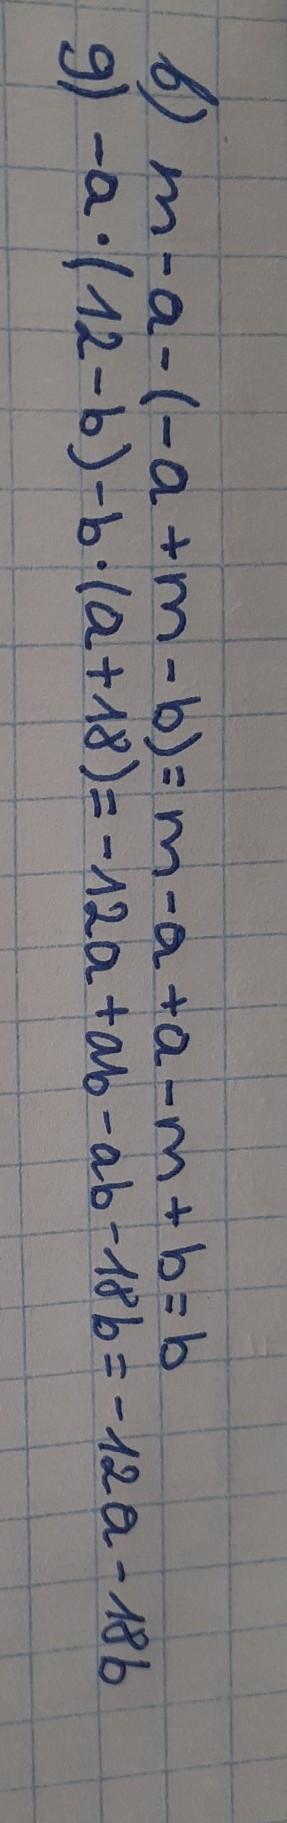 б) m-a-(-a+m-b)=m-a+a-m+b=b
g) -a·(12-b)-b·(a+18)=-12a+ab-ab-18b=-12a-18b